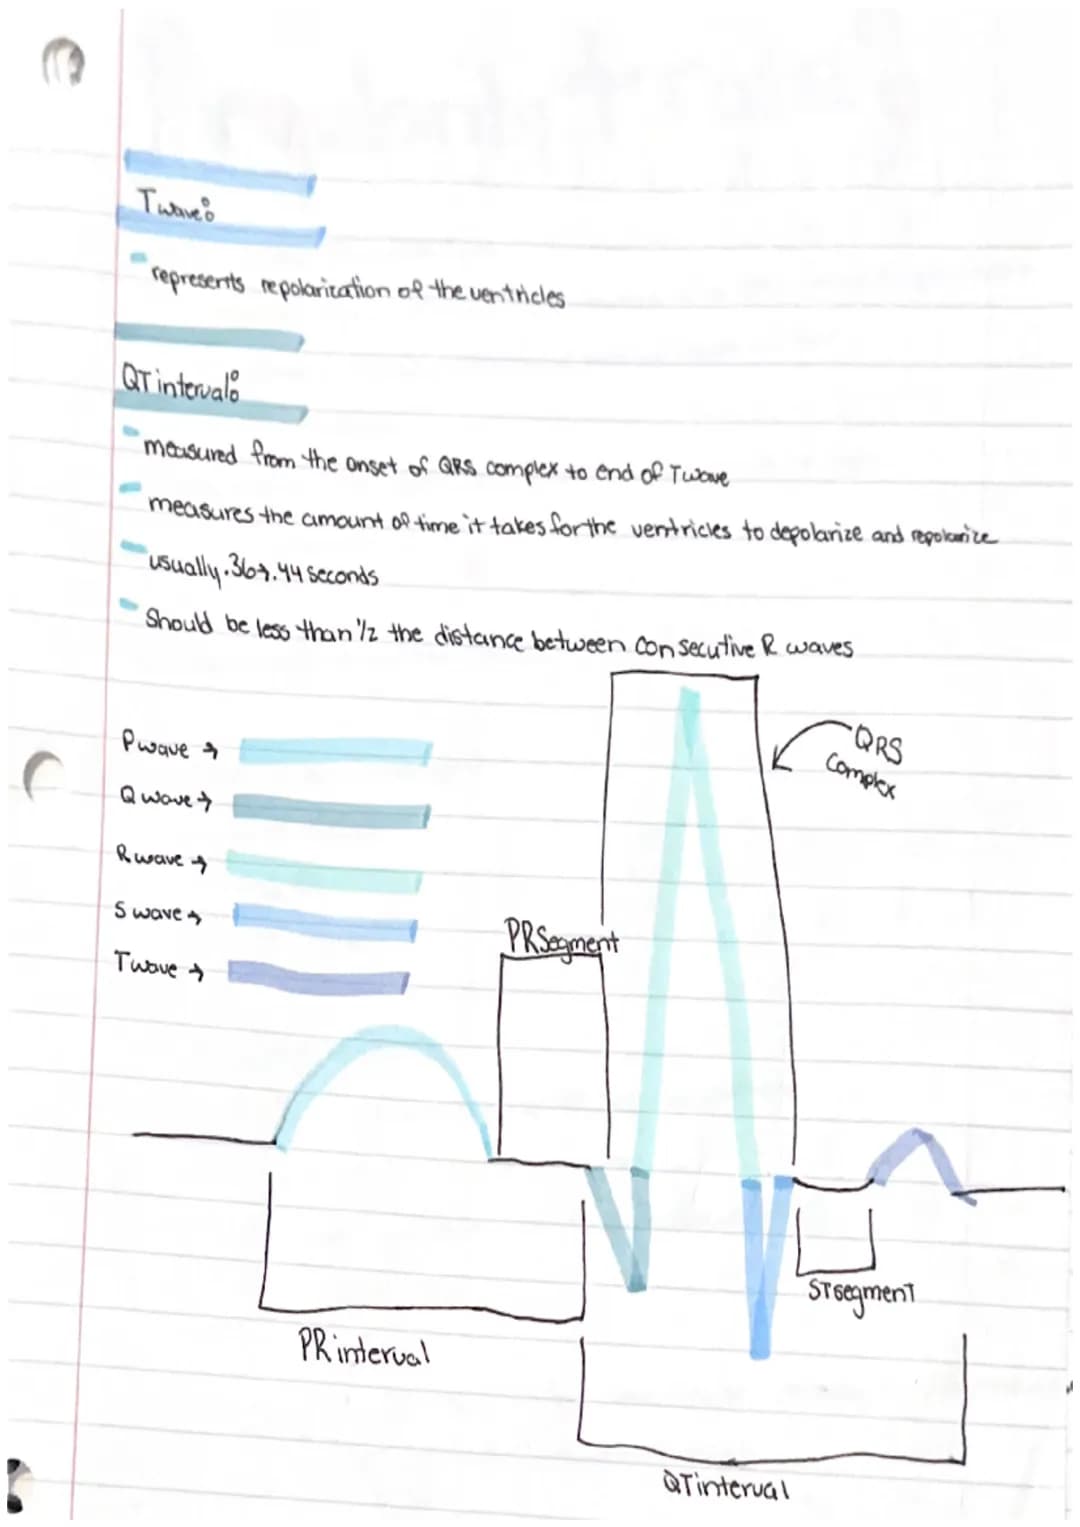 T wave:
represents repolarization of the ventricles
QT interval:
measured from the onset of QRS complex to end of T wave
measures the amount of time it takes for the ventricles to depolarize and repolarize
usually .36→.44 seconds
Should be less than 1/2 the distance between consecutive R waves
P wave →
Q wave →
R wave →
S wave →
T wave →
QRS
Complex
PR Segment
ST segment
PR interval
QT interval